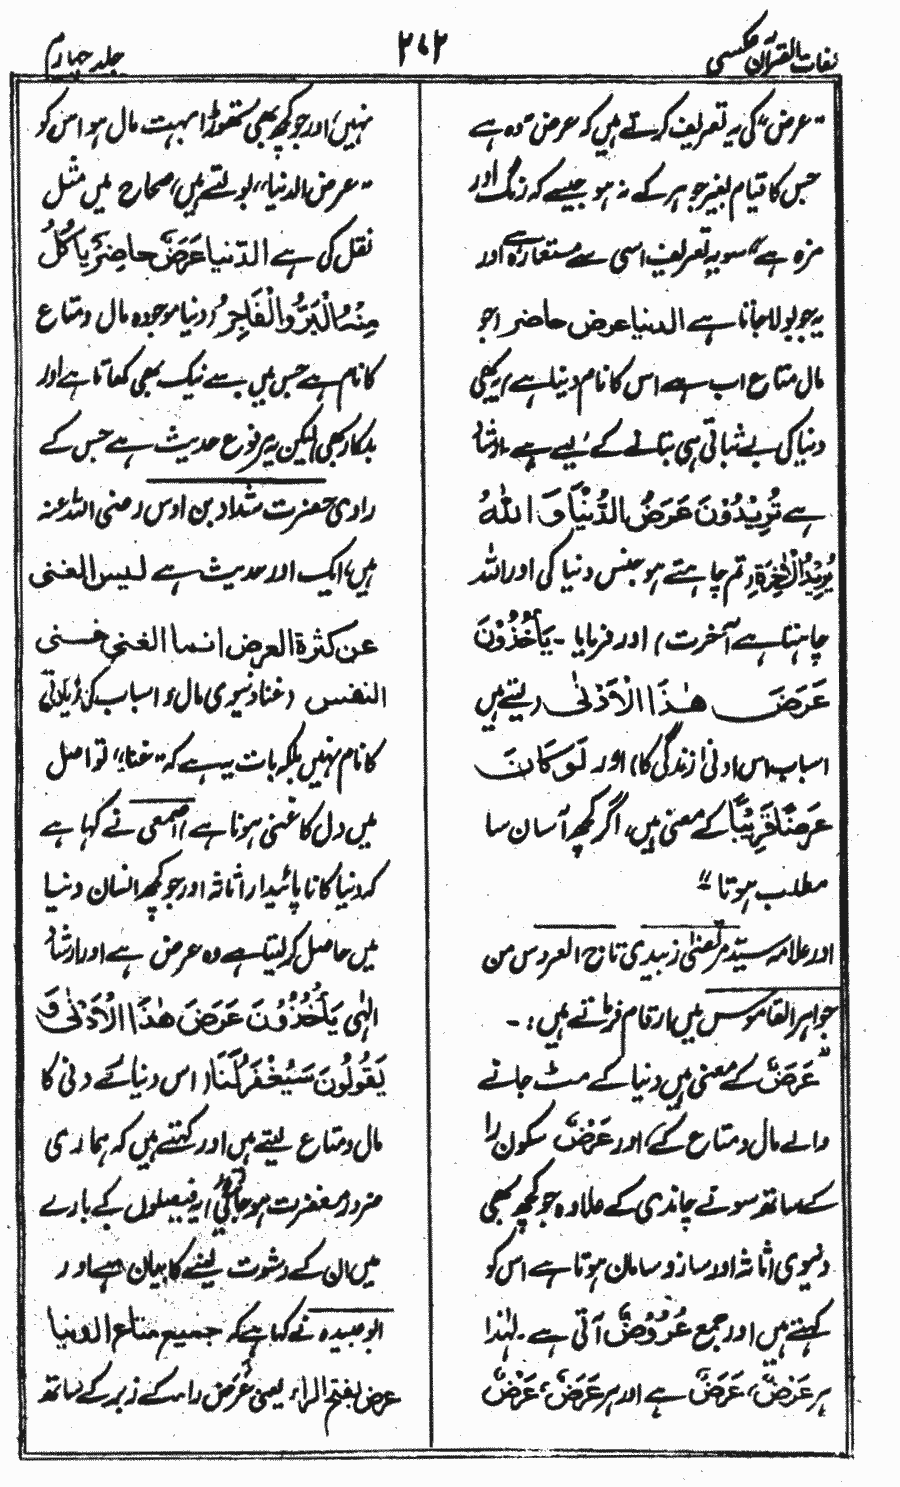 لغات القرآن عکسی
۲۷۲
جلد چہارم
"عرض" کی یہ تعریف کرتے ہیں کہ عرض وہ ہے
جس کا قیام بغیر جوہر کے نہ ہو جیسے کہ رنگ اور
مزہ ہے" سو یہ تعریف اسی سے مستعار ہے اور
یہ جو بولا جاتا ہے الدنیا عرض حاضر (جو
مال متاع اب ہے اس کا نام دنیا ہے) یہ بھی
دنیا کی بے ثباتی ہی بتانے کے لیے ہے ارشاد
ہے تُرِيْدُوْنَ عَرَضَ الدُّنْيَا وَ اللهُ
يُرِيْدُ الْاٰخِرَةَ (تم چاہتے ہو جنس دنیا کی اور اللہ
چاہتا ہے آخرت) اور فرمایا۔ يَأْخُذُوْنَ
عَرَضَ هٰذَا الْاَدْنٰى (لیتے ہیں
اسباب اس ادنیٰ زندگی کا) اور لَوْ كَانَ
عَرَضًا قَرِيْبًا کے معنی ہیں، اگر کچھ آسان سا
مطلب ہوتا"
اور علامہ سید مرتضیٰ زبیدی تاج العروس من
جواہر القاموس میں ارقام فرماتے ہیں:۔
"عَرَضٌ کے معنی ہیں دنیا کے مٹ جانے
والے مال و متاع کے، اور عَرْضٌ سکون را
کے ساتھ سونے چاندی کے علاوہ جو کچھ بھی
دنیوی اثاثہ اور ساز و سامان ہوتا ہے اس کو
کہتے ہیں اور جمع عُرُوْضٌ آتی ہے۔ لہٰذا
ہر عَرْضٌ، عَرَضٌ ہے اور ہر عَرَضٌ، عَرْضٌ
نہیں، اور جو کچھ بھی تھوڑا بہت مال ہو اس کو
"عرض الدنیا" بولتے ہیں، صحاح میں مثل
نقل کی ہے الدّنيا عَرَضٌ حاضِرٌ يأكُلُ
مِنْهُ الْبَرُّ والْفَاجِرُ (دنیا موجودہ مال و متاع
کا نام ہے جس میں سے نیک بھی کھاتا ہے اور
بدکار بھی) لیکن یہ مرفوع حدیث ہے جس کے
راوی حضرت شداد بن اوس رضی اللہ عنہ
ہیں، ایک اور حدیث ہے ليس الغنى
عن كثرة العرض انما الغنى غنى
النفس (غنا دنیوی مال و اسباب کی زیادتی
کا نام نہیں بلکہ بات یہ ہے کہ "غنا" تو اصل
میں دل کا غنی ہونا ہے) اصمعی نے کہا ہے
کہ دنیا کا ناپائیدار اثاثہ اور جو کچھ انسان دنیا
میں حاصل کر لیتا ہے وہ عرض ہے اور ارشاد
الٰہی يَأْخُذُوْنَ عَرَضَ هٰذَا الْاَدْنٰى وَ
يَقُوْلُوْنَ سَيُغْفَرُ لَنَا (اس دنیائے دنی کا
مال و متاع لیتے ہیں اور کہتے ہیں کہ ہماری
ضرور مغفرت ہو جائے گی) یہ فیصلوں کے بارے
میں ان کے رشوت لینے کا بیان ہے اور
ابو عبیدہ نے کہا ہے کہ جميع متاع الدنيا
عرض بفتح الراء یعنی عَرَض راء کے زبر کے ساتھ